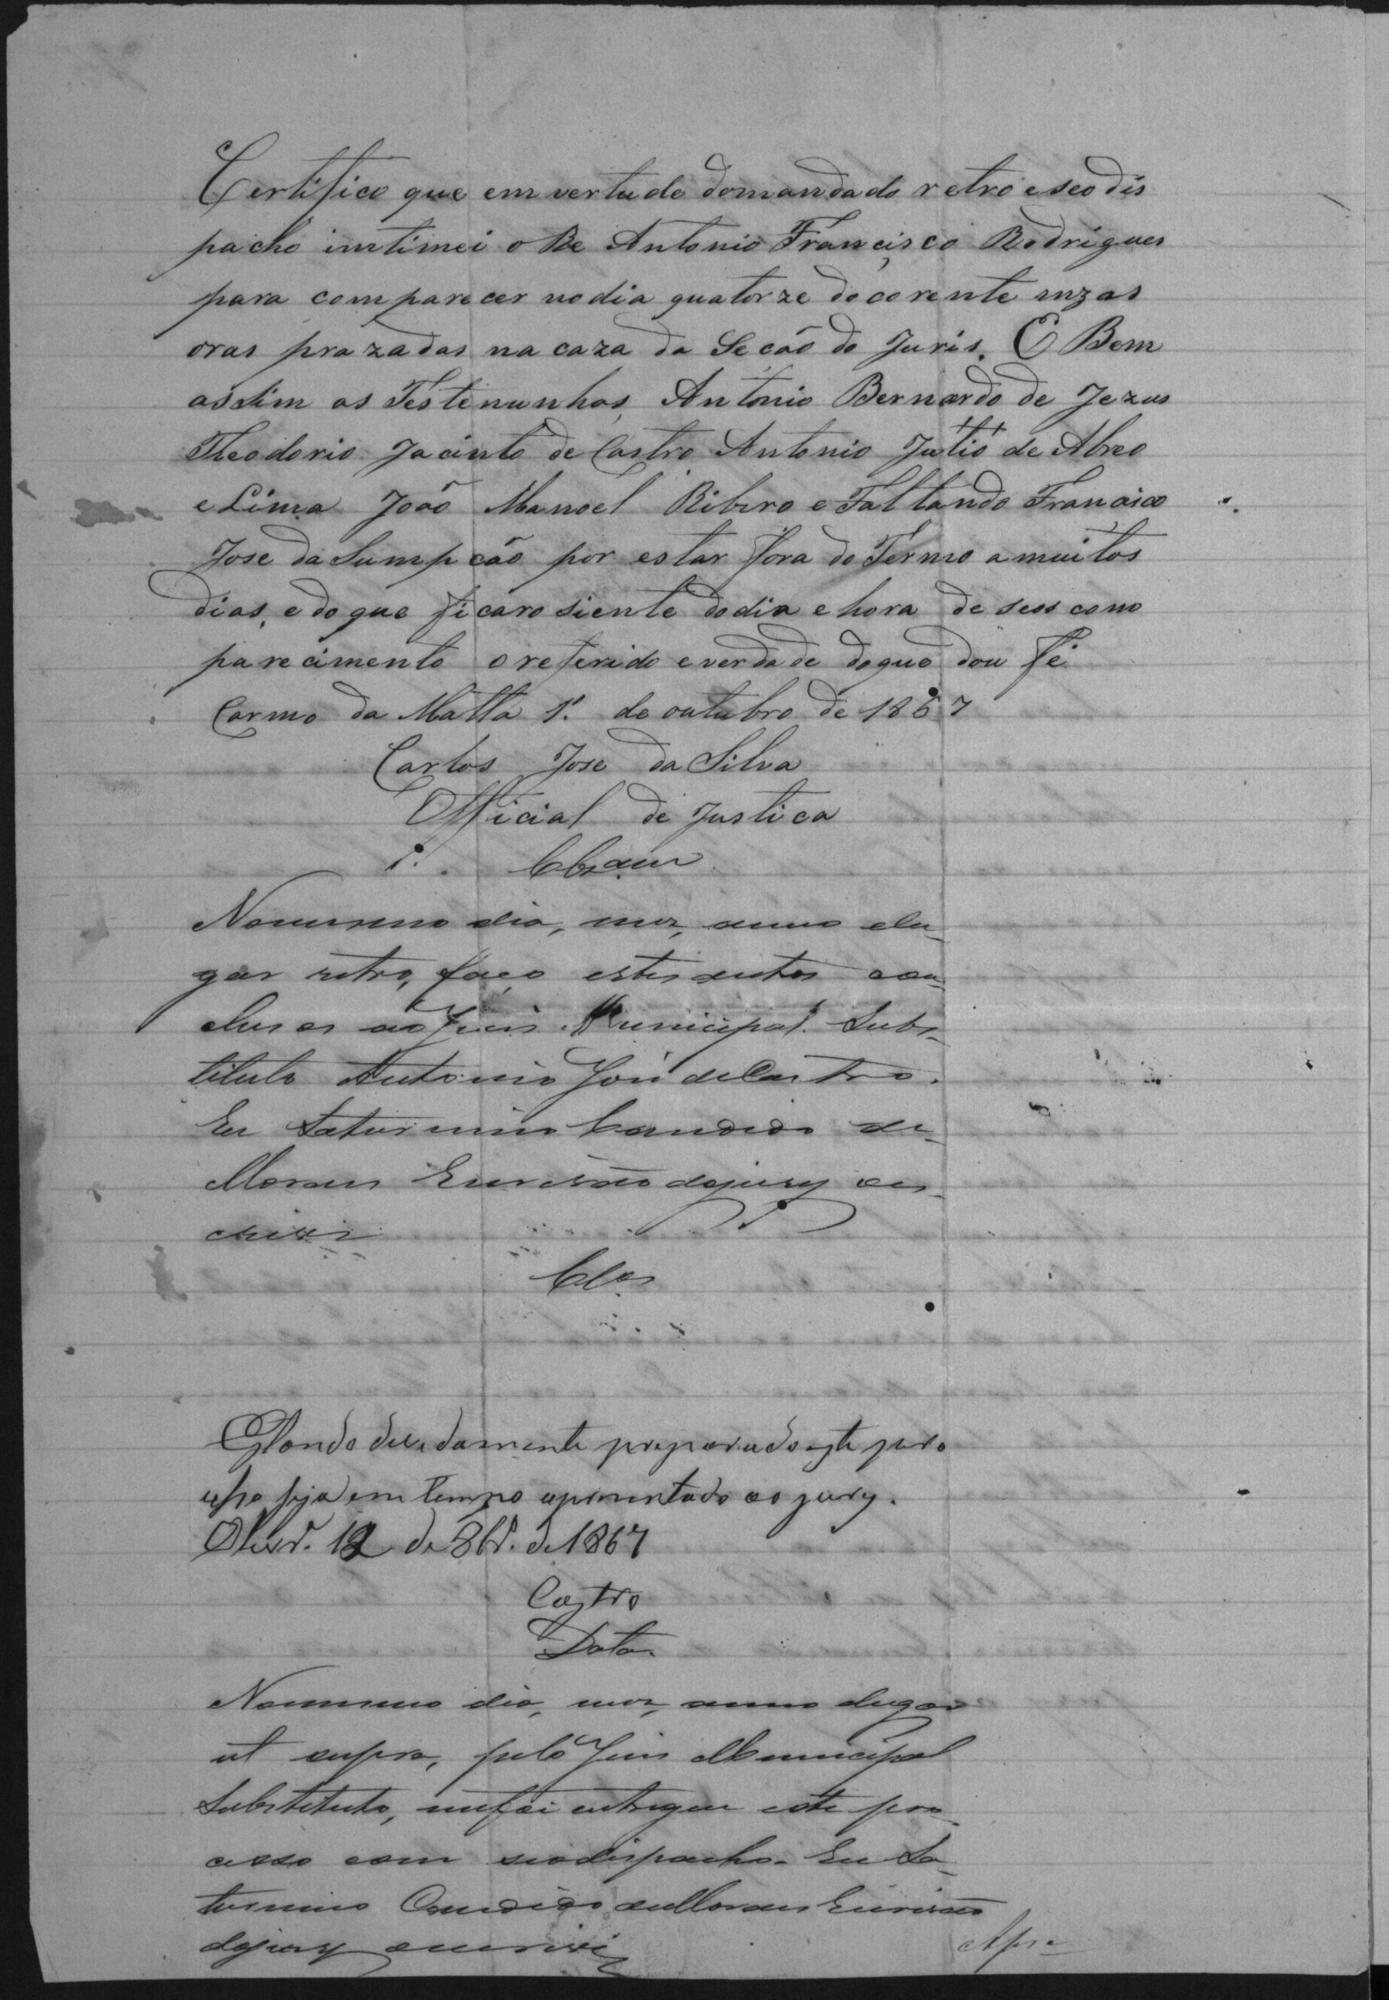 Certifico que em vertude domandado retro e seo dis
pacho intimei o Re Antonio Francisco Rodrigues
para comparecer no dia quatorze do corente
oras prazadas na caza da Secão do Juris. E Bem
assim as Testemunhas, Antonio Bernardo de Jezus
Theodorio Jacinto de Castro Antonio Justio de Abreo
e Lima João Manoel Ribero e Faltando Francisco
Jose da Sumpcão por estar fora do Termo a muitos
dias, e do que ficaro siente do dia e hora de seos com
parecimento o referido e verdade do que dou fé
Carmo da Matta 1º. de outubro de 1867
Carlos Jose da Silva
Official de Justica
Clsam
No mesmo dia, mez, anno elu-
gar retro, faço estes autos con-
clusos ao Juis Municipal Subs-
tituto Antonio José de Castro.
Eu Saturnino Candido de
Moraes Escrivão do jury es-
crivi
Clos
Estando devidamente preparado este pro
cesso seja em tempo aprezentado ao jury.
Olivrª. 12 de 8br.º de 1867
Castro
Data
No mesmo dia, mez, anno e lugar
ut supra, pelo Juis Municipal
Substituto, me foi entregue este pro-
cesso com seo dispacho. Eu Sa-
turnino Candido de Moraes Escrivão
do jury escrivi
Apre